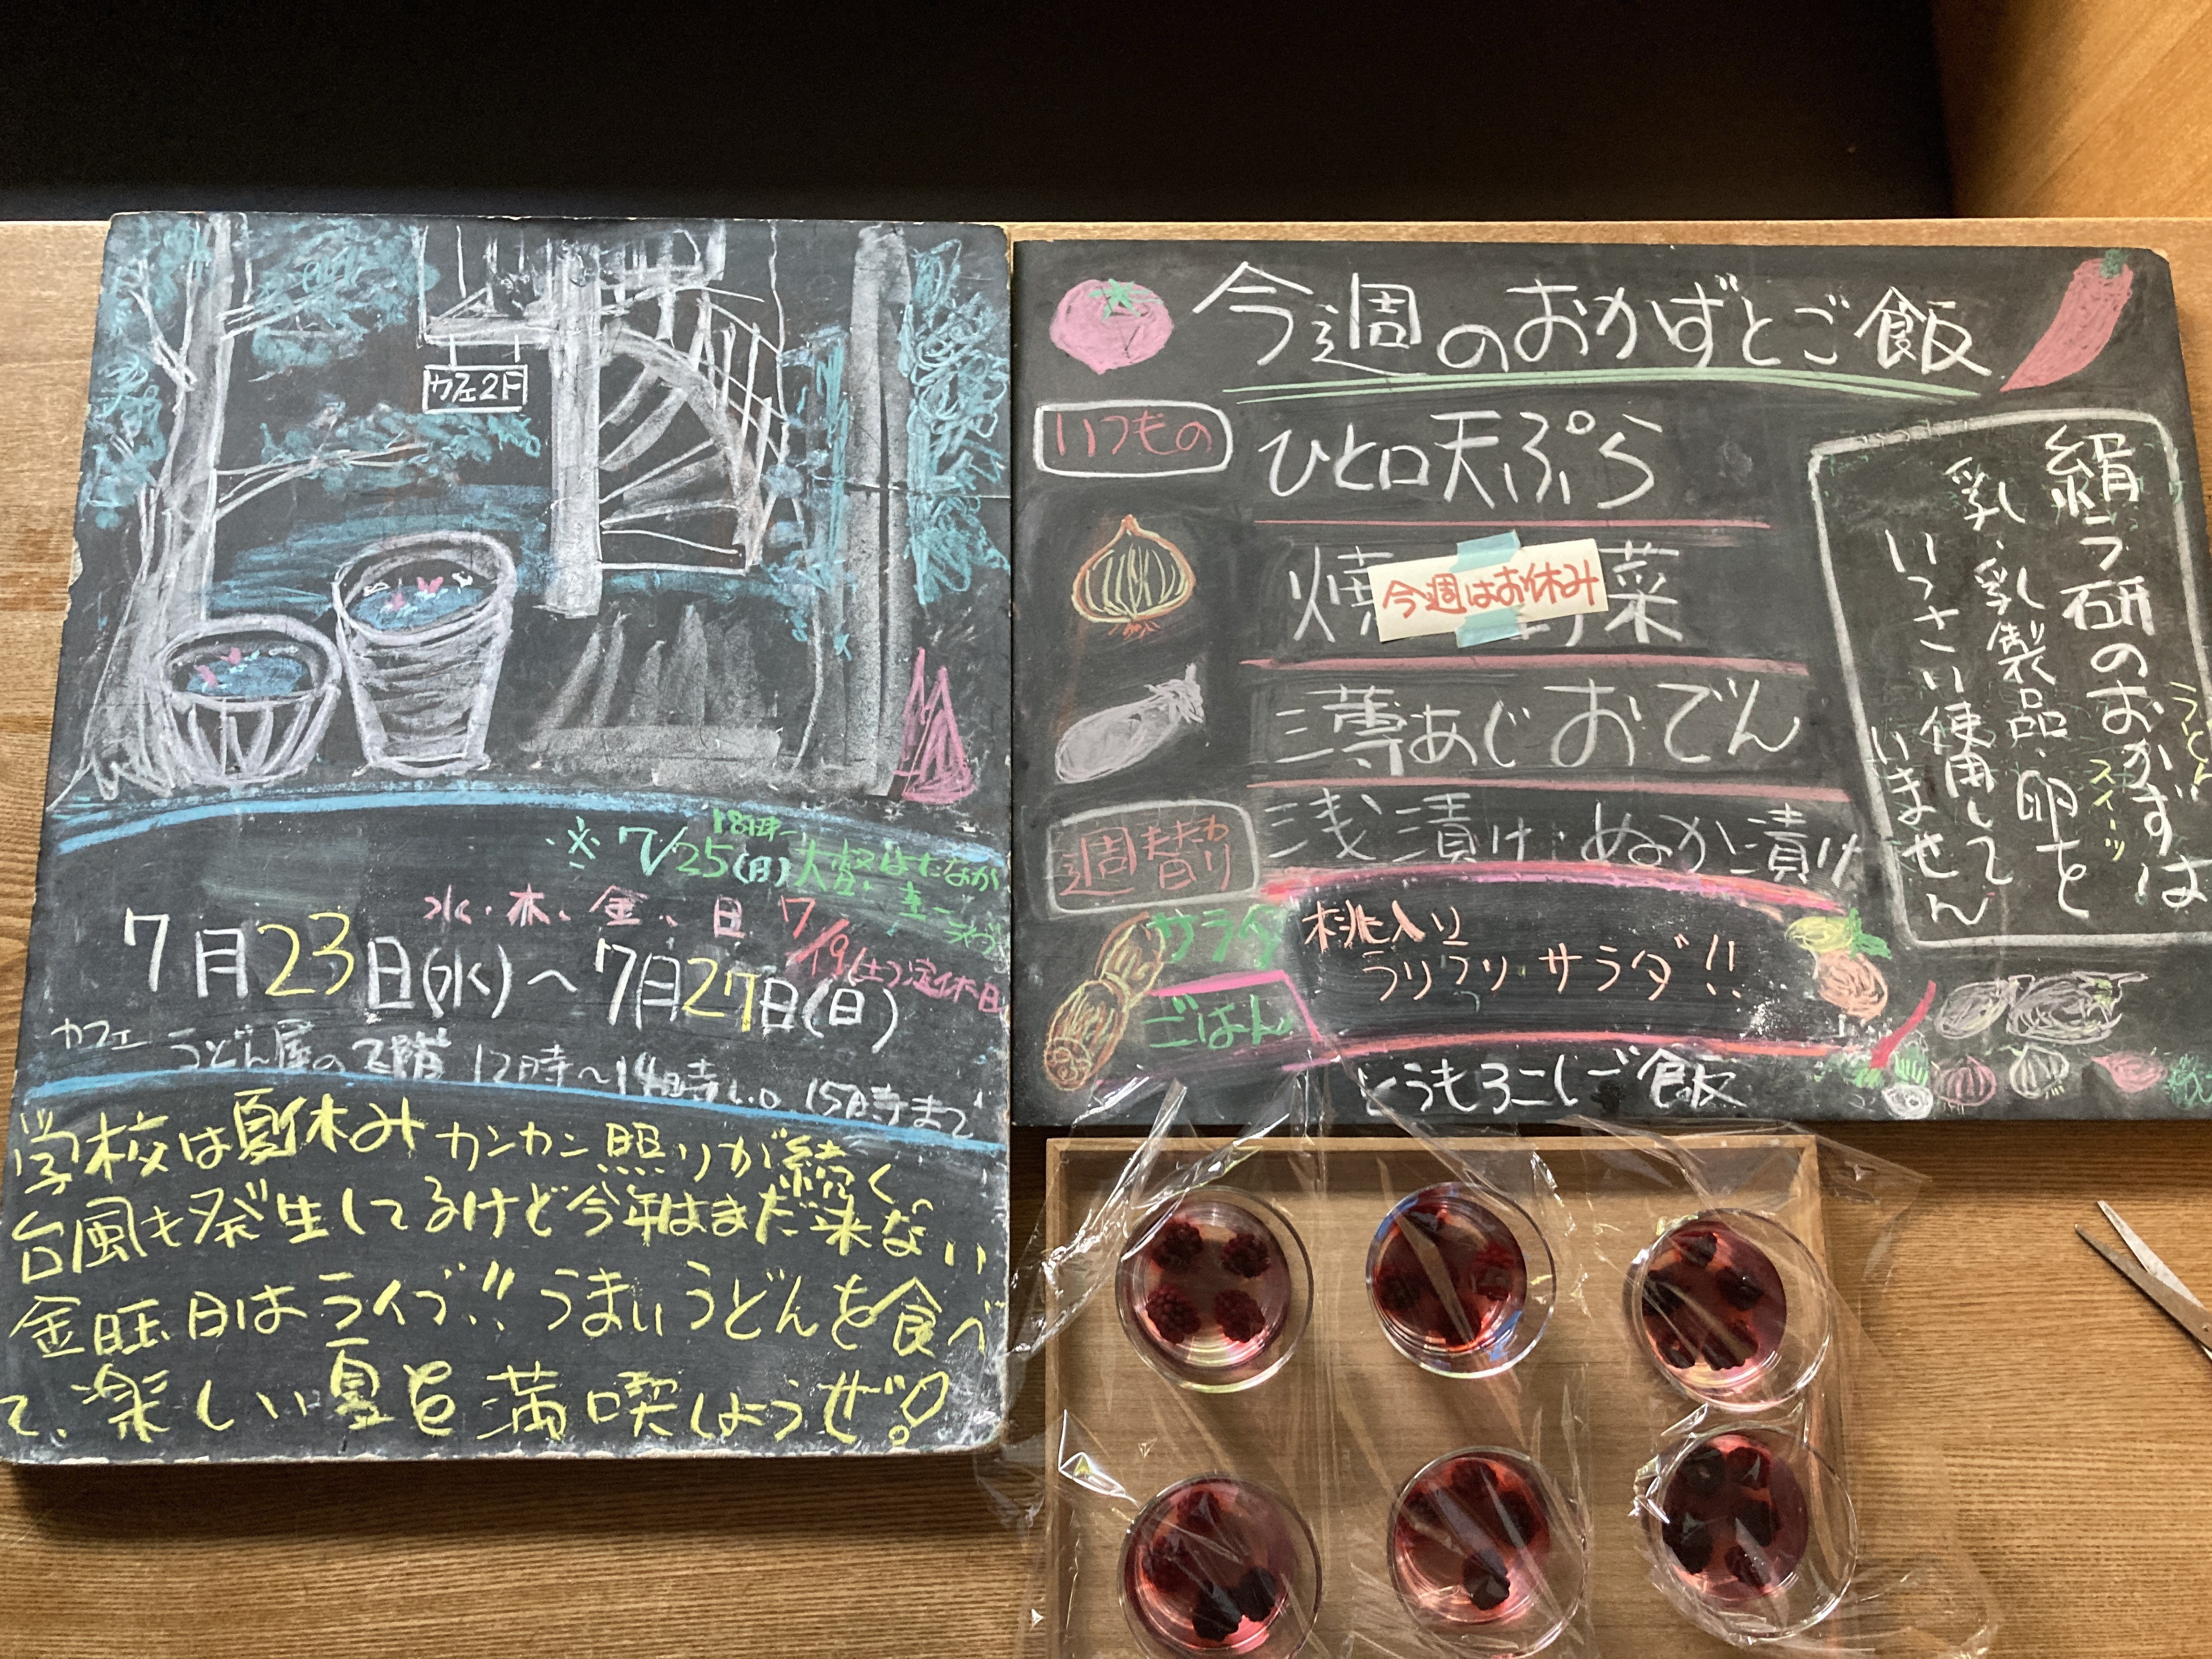 カフェ2F
※7/25(日)
18時〜
水・木、金、日
7/19(土)定休日
7月23日(水)〜7月27日(日)
カフェ うどん屋の2階 12時〜14時L.O 15時まで
学校は夏休みカンカン照りが続く。
台風も発生してるけど今年はまだ来ない
金曜日はライブ!!うまいうどんを食べ
て、楽しい夏を満喫しようぜ!
今週のおかずとご飯
いつもの
ひと口天ぷら
焼 菜
今週はお休み
あじおでん
週替わり
浅漬け・ぬか漬け
サラダ
桃入り
サラダ!!
ごはん
とうもろこしご飯
うどん
スイーツ
絹ラ研のおかずは
乳、乳製品、卵を
いっさい使用して
いません